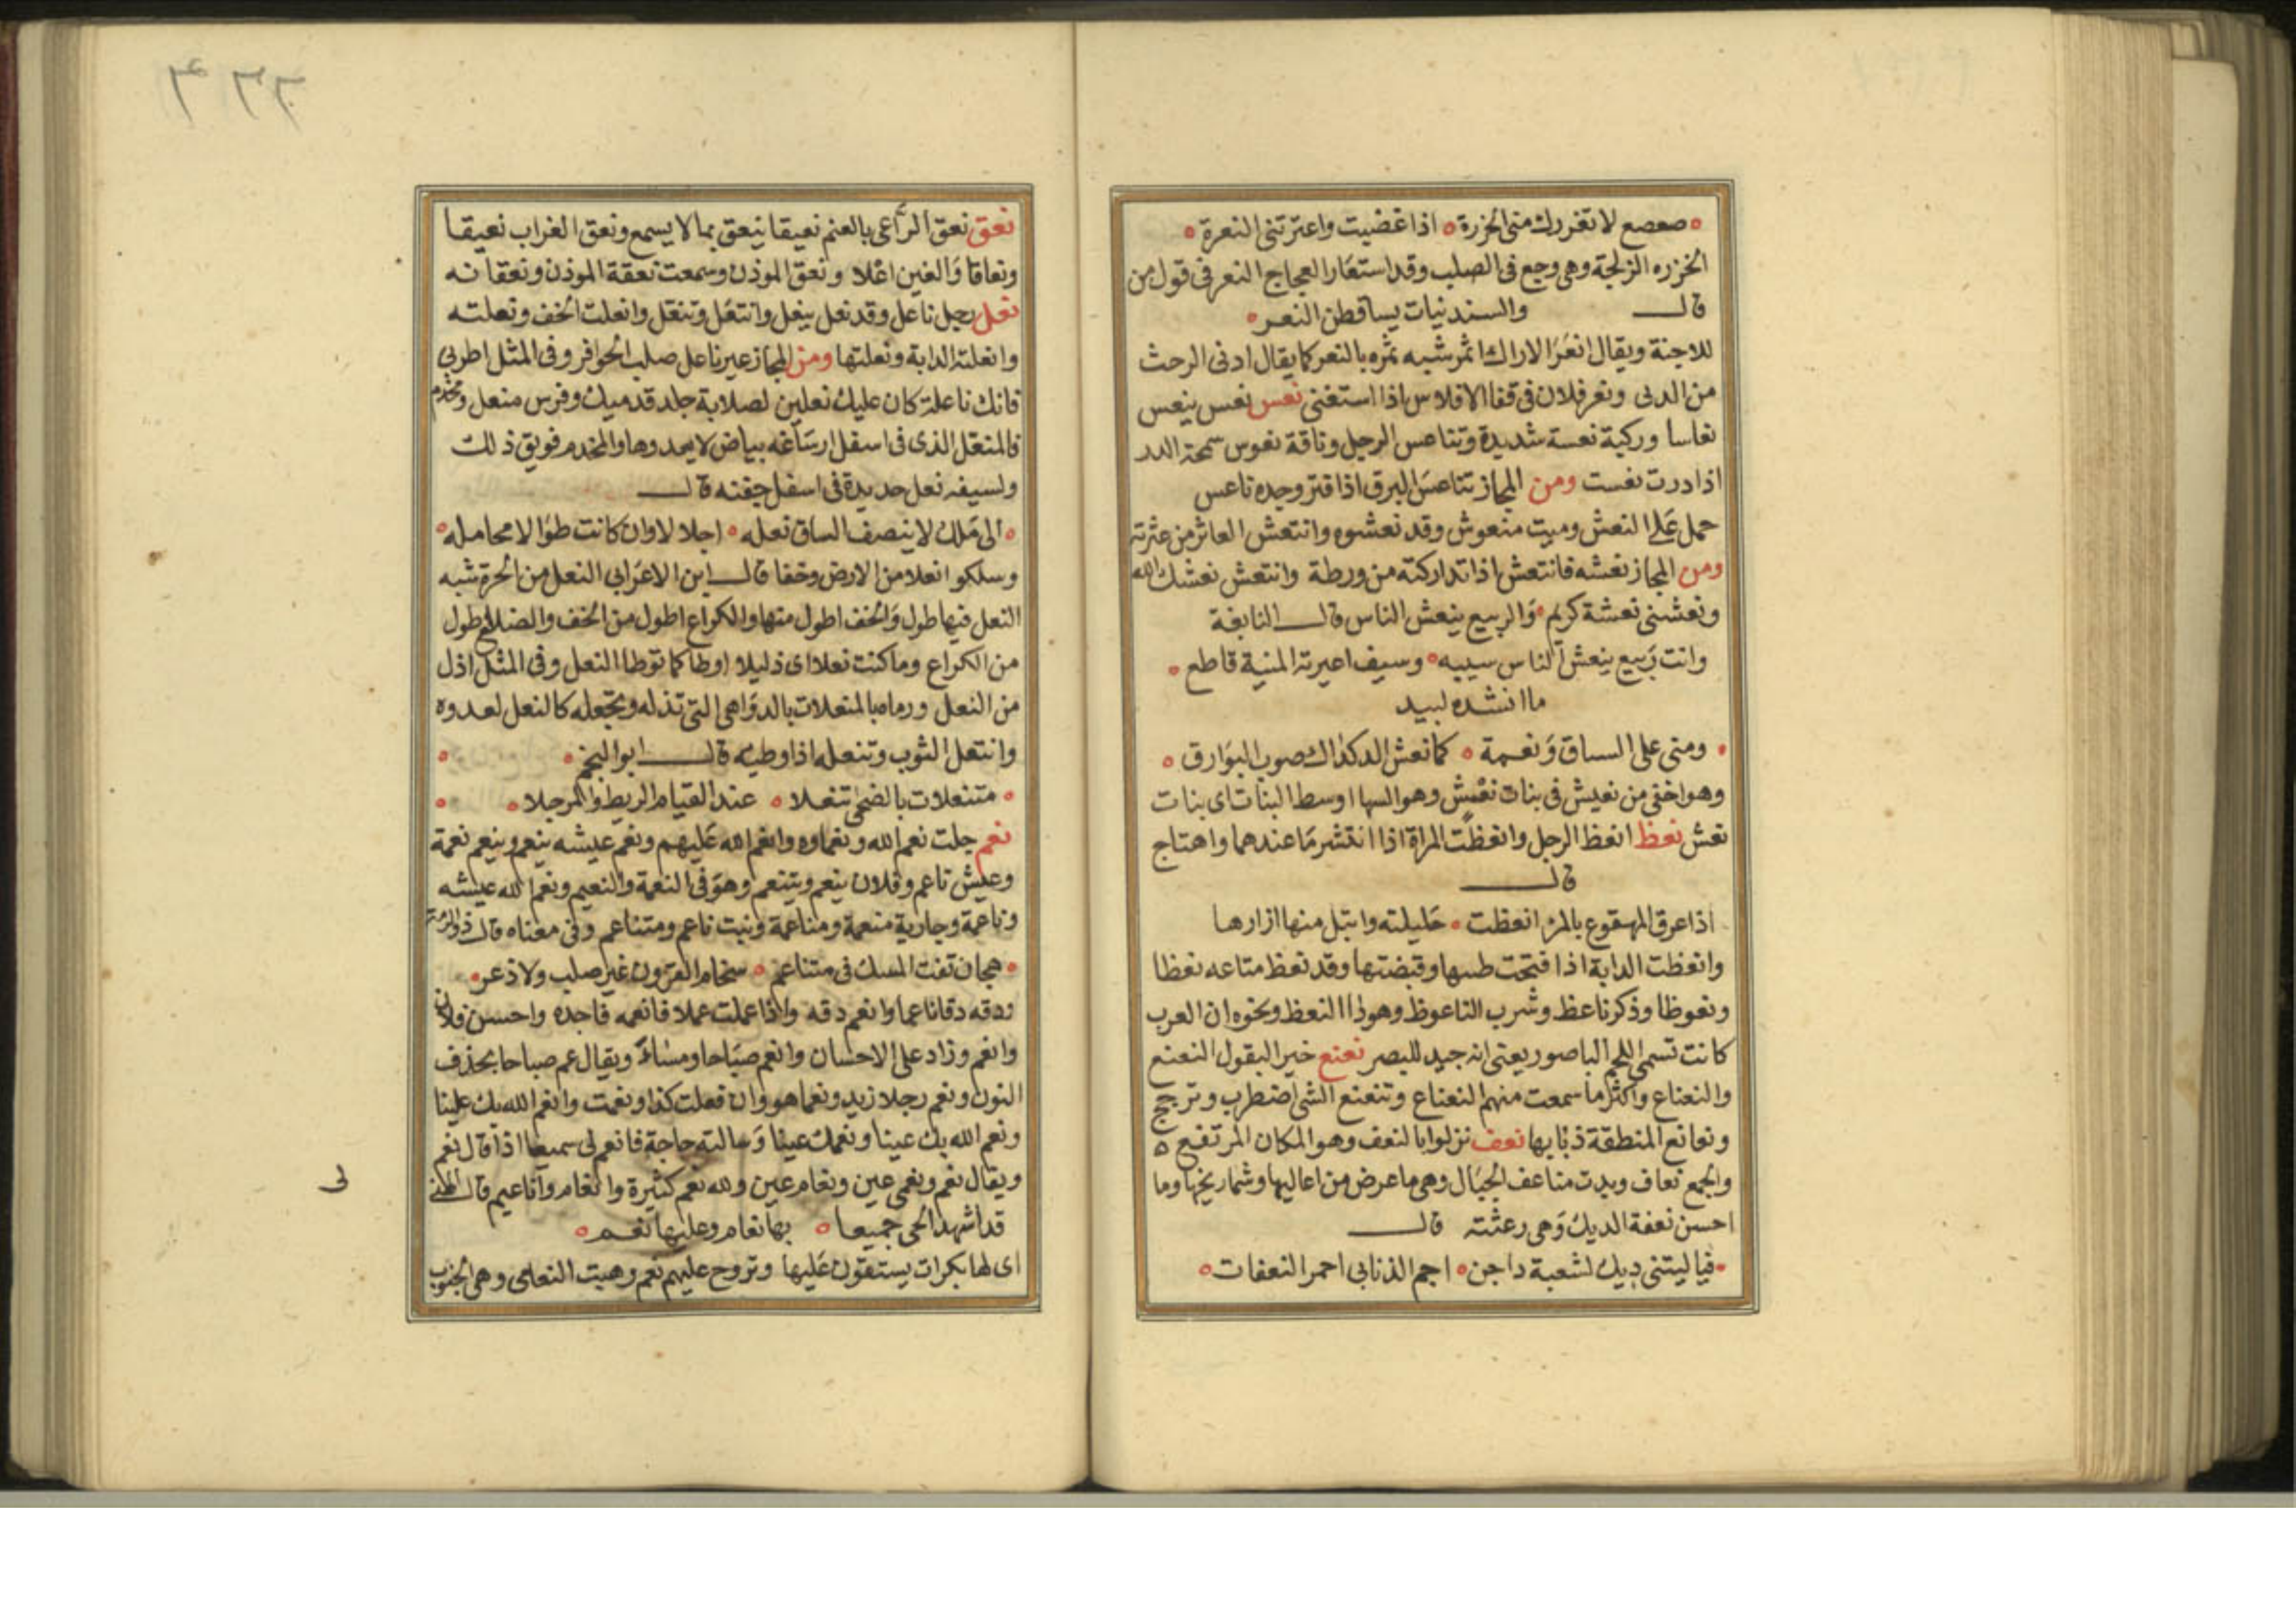 صعصع لا تغررك منى الخزرة اذا غضبت واعترتنى النعرة
الخزره الزلجة وهى وجع فى الصلب وقد استعار العجاج النعر فى قول من
قال والسندنيات يساقطن النعر
للاجنة ويقال انعر الاراك اثمر شبه ثمره بالنعر كما يقال ادنى الرحث
من الدبى ونعر فلان فى قفا الافلاس اذا استغنى نعس نعس ينعس
نعاسا وركبة نعسة شديدة وتناعس الرجل وناقة نعوس سمحة الدر
اذا درت نعست ومن المجاز تناعس البرق اذا فتر وجده ناعس
حمل على النعش وميت منعوش وقد نعشوه وانتعش العاثر من عثرته
ومن المجاز نعشه فانتعش اذا تداركته من ورطة وانتعش نعشك الله
ونعشنى نعشة كريم والربيع ينعش الناس قال النابغة
وانت ربيع ينعش الناس سيبه وسيف اعيرته المنية قاطع
ما انشده لبيد
ومنى على السباق ونعمة كما نعش الدكداك صوب البوارق
وهو اخفى من نعيش فى بنات نعش وهو السها اوسط البنات اى بنات
نعش نعظ انعظ الرجل وانعظت المراة اذا انتشر ما عندهما واهتاج
قال
اذا عرق المهقوع بالمرء انعظت حليلته وابتل منها ازارها
وانعظت الدابة اذا فتحت وقبضتها وقد نعظ متاعه نعظا
ونعوظا وذكر ناعظ وشرب الناعوظ وهو دا النعظ ونحوه ان العرب
كانت تسمى اللحم الباصور يعنى انه جيد للبصر نعنع خير البقول النعنع
والنعناع واكثر ما سمعت منهم النعناع وتنعنع الشى اضطرب وترجح
ونعانع المنطقة ذبابها نعف نزلوا بالنعف وهو المكان المرتفع
والجمع نعاف وبدت مناعف الجبال وهى ما عرض من اعاليها وشماريخها وما
احسن نعفة الديك وهى رعثته قال
فيا ليتنى ديك لشعبة داجن اجم الذنابى احمر النعفات
نعق نعق الراعى بالغنم نعيقا ينعق بما لا يسمع ونعق الغراب نعيقا
ونعاقا والغين اعلا ونعق الموذن وسمعت نعقة الموذن ونعقاته
نعل رجل ناعل وقد نعل ينعل وانتعل وتنعل وانعلت الخف ونعلته
وانعلته الدابة ونعلتها ومن المجاز عير ناعل صلب الحوافر وفى المثل اطرى
فانك ناعلة كان عليك نعلين لصلابة جلد قدميك وفرس منعل ومخدم
فالمنعل الذى فى اسفل ارساغه بياض لا يعدوها والمخدم فويق ذلك
ولسيفه نعل حديدة فى اسفل جفنه قال
الى ملك لا ينصف الساق نعله اجل لا وان كانت طوالا محامله
وسلكو انعلا من الارض وخفا قال ابن الاعرابى النعل من الحرة شبه
النعل فيها طول والخف اطول منها والكراع اطول من الخف والضلع اطول
من الكراع وما كنت نعلا اى ذليلا اوطا كما توطا النعل وفى المثل اذل
من النعل ورماه بالمنعلات بالدواهى التى تذله وتجعله كالنعل لعدوه
وانتعل الثوب وتنعله اذا وطيه قال ابو النجم
متنعلات بالضحى تنعلا عند القيام الريط والمرجلا
نعم جلت نعم الله ونعماوه وانعم الله عليهم ونعم عيشه ينعم وينعم نعمة
وعيش ناعم وفلان ينعم ويتنعم وهو فى النعمة والنعيم ونعم الله عيشه
وناعمة وجارية منعمة ومناعمة ونبت ناعم ومتناعم وفى معناه قال ذو الرمة
هجان تفت المسك فى متناعم سخام القرون غير صلب ولا ذعر
ودقه دقا ناعما وانعم دقه واذا عملت عملا فانعمه فاجده واحسن فلان
وانعم وزاد على الاحسان وانعم صباحا ومساء ويقال عم صباحا بحذف
النون ونعم رجلا زيد ونعما هو وان فعلت كذا ونعمت وانعم الله بك علينا
ونعم الله بك عينا ونعمك عينا وسالته حاجة فانعم لى سميعا اذا قال نعم
ويقال نعم ونعمى عين ونعام عين ولله نعم كثيرة وانعام واناعيم قال
قد اشهد الحى جميعا بها نعام وعليها نعم
اى لها بكرات يستقون عليها وتروح عليهم نعم وهبت النعامى وهى الجنوب